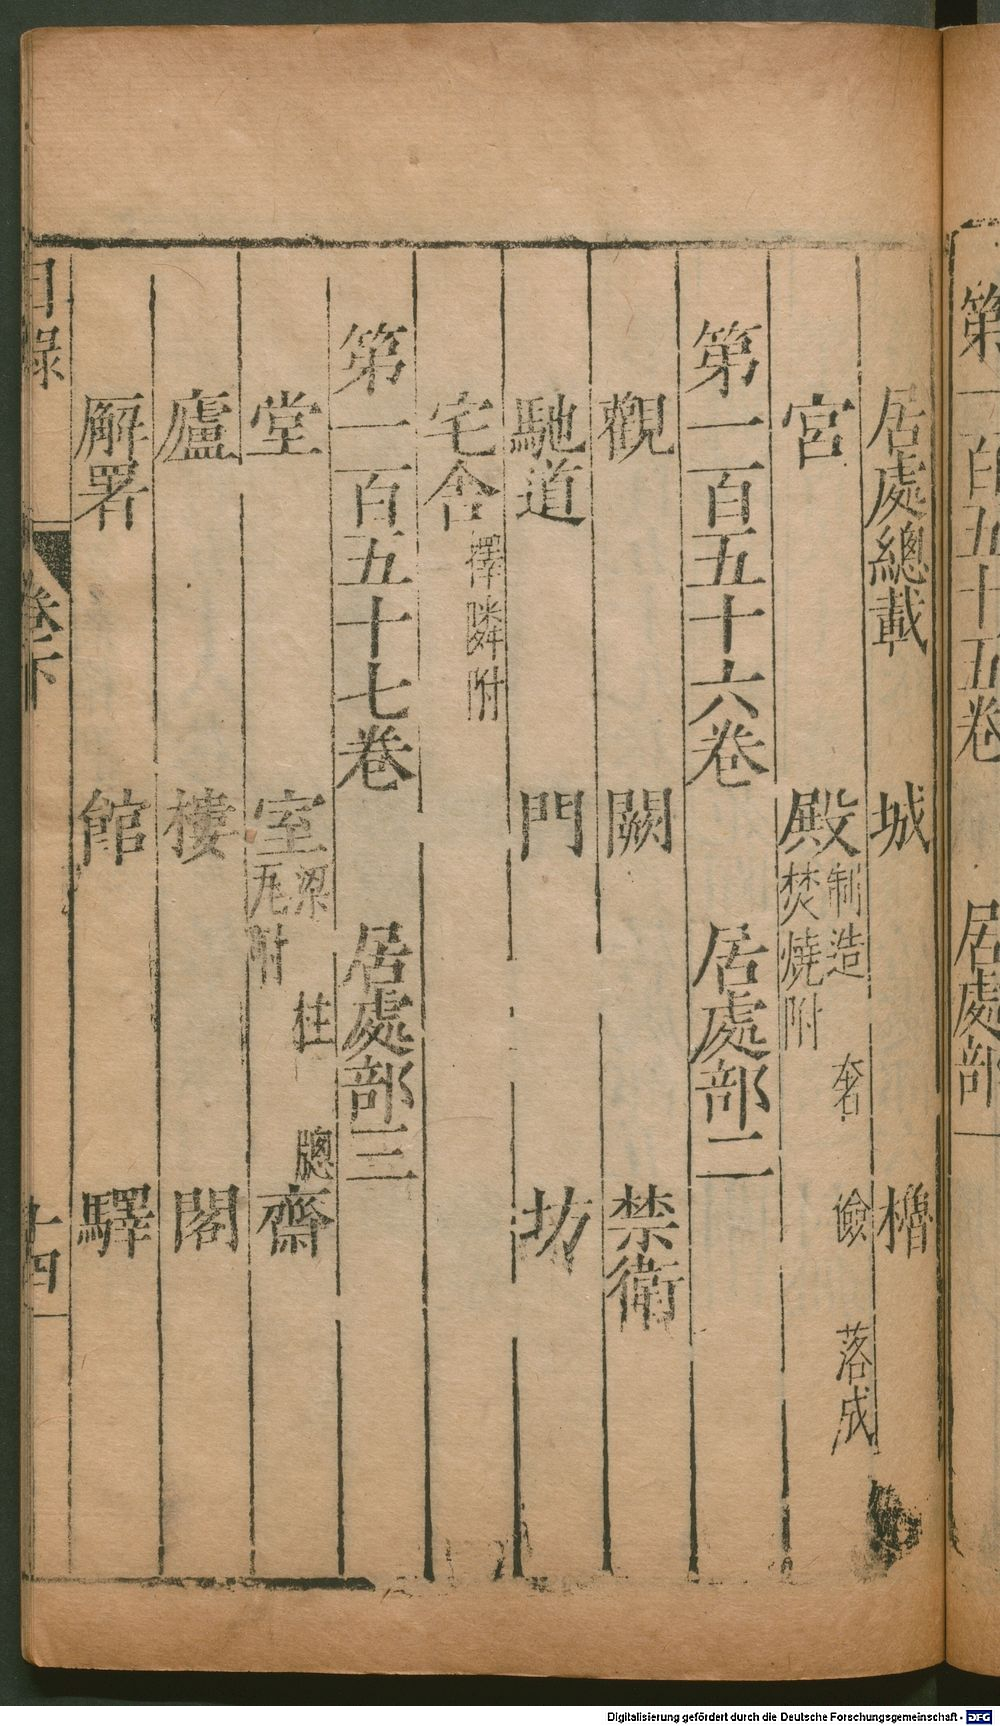 第一百五十五卷 居處部
居處總載 城 櫓
宮 殿 制造 奢 儉 落成 焚燒附
第一百五十六卷 居處部二
觀 闕 禁衛
馳道 門 坊
宅舍 擇隣附
第一百五十七卷 居處部三
堂 室 梁 柱 牕 瓦附 齋
廬 樓 閣
廨署 館 驛
目錄 卷下 十四
Digitalisierung gefördert durch die Deutsche Forschungsgemeinschaft - DFG